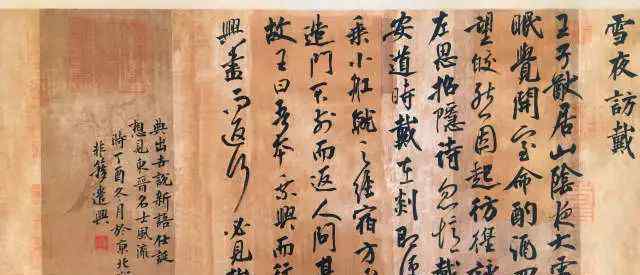 雪夜訪戴
王子猷居山陰夜大雪
眠覺開室命酌酒四
望皎然因起彷徨詠
左思招隱詩忽憶戴
安道時戴在剡即便
乘小舡就之經宿方
造門不前而返人問其
故王曰吾本乘興而行
興盡而返何必見戴
典出世說新語任誕
想見東晉名士風流
時丁酉冬月於京北
遣興